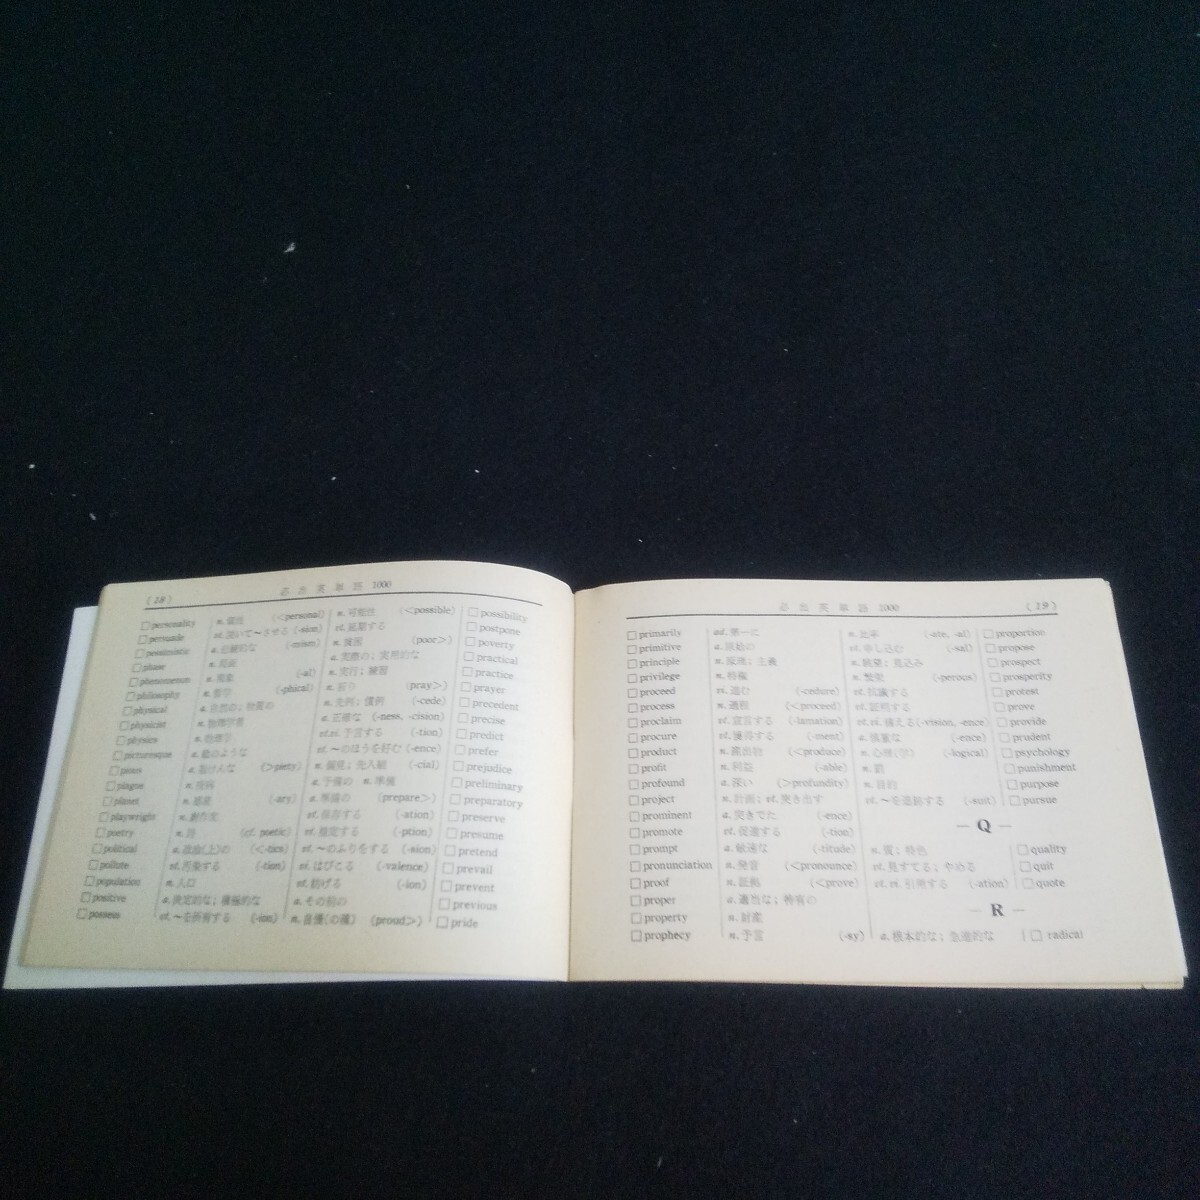 (18) 必出英単語 1000
□ personality n. 個性 (<personal) n. 可能性 (<possible) □ possibility
□ persuade vt. 説いて〜させる (-sion) vt. 延期する □ postpone
□ pessimistic a. 悲観的な (-mism) n. 貧困 (poor>) □ poverty
□ phase n. a. 実際の; 実用的な □ practical
□ phenomenon n. 現象 (-al) n. 実行; 練習 □ practice
□ philosophy n. 哲学 (-phical) n. 祈り (pray>) □ prayer
□ physical a. 自然の; 物質の n. 先例; 慣例 (-cede) □ precedent
□ physicist n. 物理学者 a. 正確な (-ness, -cision) □ precise
□ physics n. 物理学 vt.vi. 予言する (-tion) □ predict
□ picturesque a. 絵のような vt. 〜のほうを好む (-ence) □ prefer
□ pious a. 敬けんな (>piety) n. 偏見; 先入観 (-cial) □ prejudice
□ plague n. 疫病 a. 予備の n. 準備 □ preliminary
□ planet n. 惑星 (-ary) a. 準備の (prepare>) □ preparatory
□ playwright n. 劇作家 vt. 保存する (-ation) □ preserve
□ poetry n. 詩 (cf. poetic) vt. 推定する (-ption) □ presume
□ political a. 政治(上)の (<-tics) vt. 〜のふりをする (-sion) □ pretend
□ pollute vt. 汚染する (-tion) vi. はびこる (-valence) □ prevail
□ population n. 人口 vt. 妨げる (-ion) □ prevent
□ positive a. 決定的な; 積極的な a. その前の □ previous
□ possess vt. 〜を所有する (-ion) n. 自慢(の種) (proud>) □ pride
必出英単語 1000 (19)
□ primarily ad. 第一に n. 比率 (-ate, -al) □ proportion
□ primitive a. 原始の vt. 申し込む (-sal) □ propose
□ principle n. 原理; 主義 n. 眺望; 見込み □ prospect
□ privilege n. 特権 n. 繁栄 (-perous) □ prosperity
□ proceed vi. 進む (-cedure) vi. 抗議する □ protest
□ process n. 過程 (<proceed) vt. 証明する □ prove
□ proclaim vt. 宣言する (-lamation) vt.vi. 備える (-vision, -ence) □ provide
□ procure vt. 獲得する (-ment) a. 慎重な (-ence) □ prudent
□ product n. 産出物 (<produce) n. 心理(学) (-logical) □ psychology
□ profit n. 利益 (-able) n. 罰 □ punishment
□ profound a. 深い (>profundity) n. 目的 □ purpose
□ project n. 計画; vt. 突き出す vt. 〜を追跡する (-suit) □ pursue
□ prominent a. 突きでた (-ence)
— Q —
□ promote vt. 促進する (-tion)
□ prompt a. 敏速な (-titude) n. 質; 特色 □ quality
□ pronunciation n. 発音 (<pronounce) vt. 見すてる; やめる □ quit
□ proof n. 証拠 (<prove) vt.vi. 引用する (-ation) □ quote
□ proper a. 適当な; 特有の
— R —
□ property n. 財産
□ prophecy n. 予言 (-sy) a. 根本的な; 急進的な □ radical